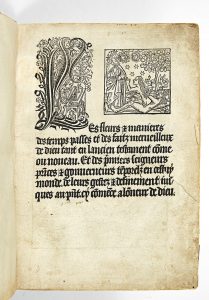 Les fleurs ⁊ manieres
des temps passes et des faitz merveilleux
de dieu tant en lancien testament cõme
ou nouveau. Et des p̃miers seigneurs
prĩces ⁊ gouverneurs tẽporelz en cestuy
monde. de leurs gestes ⁊ definement ius
ques au pñt. cy cõmẽce a lõneur de dieu.